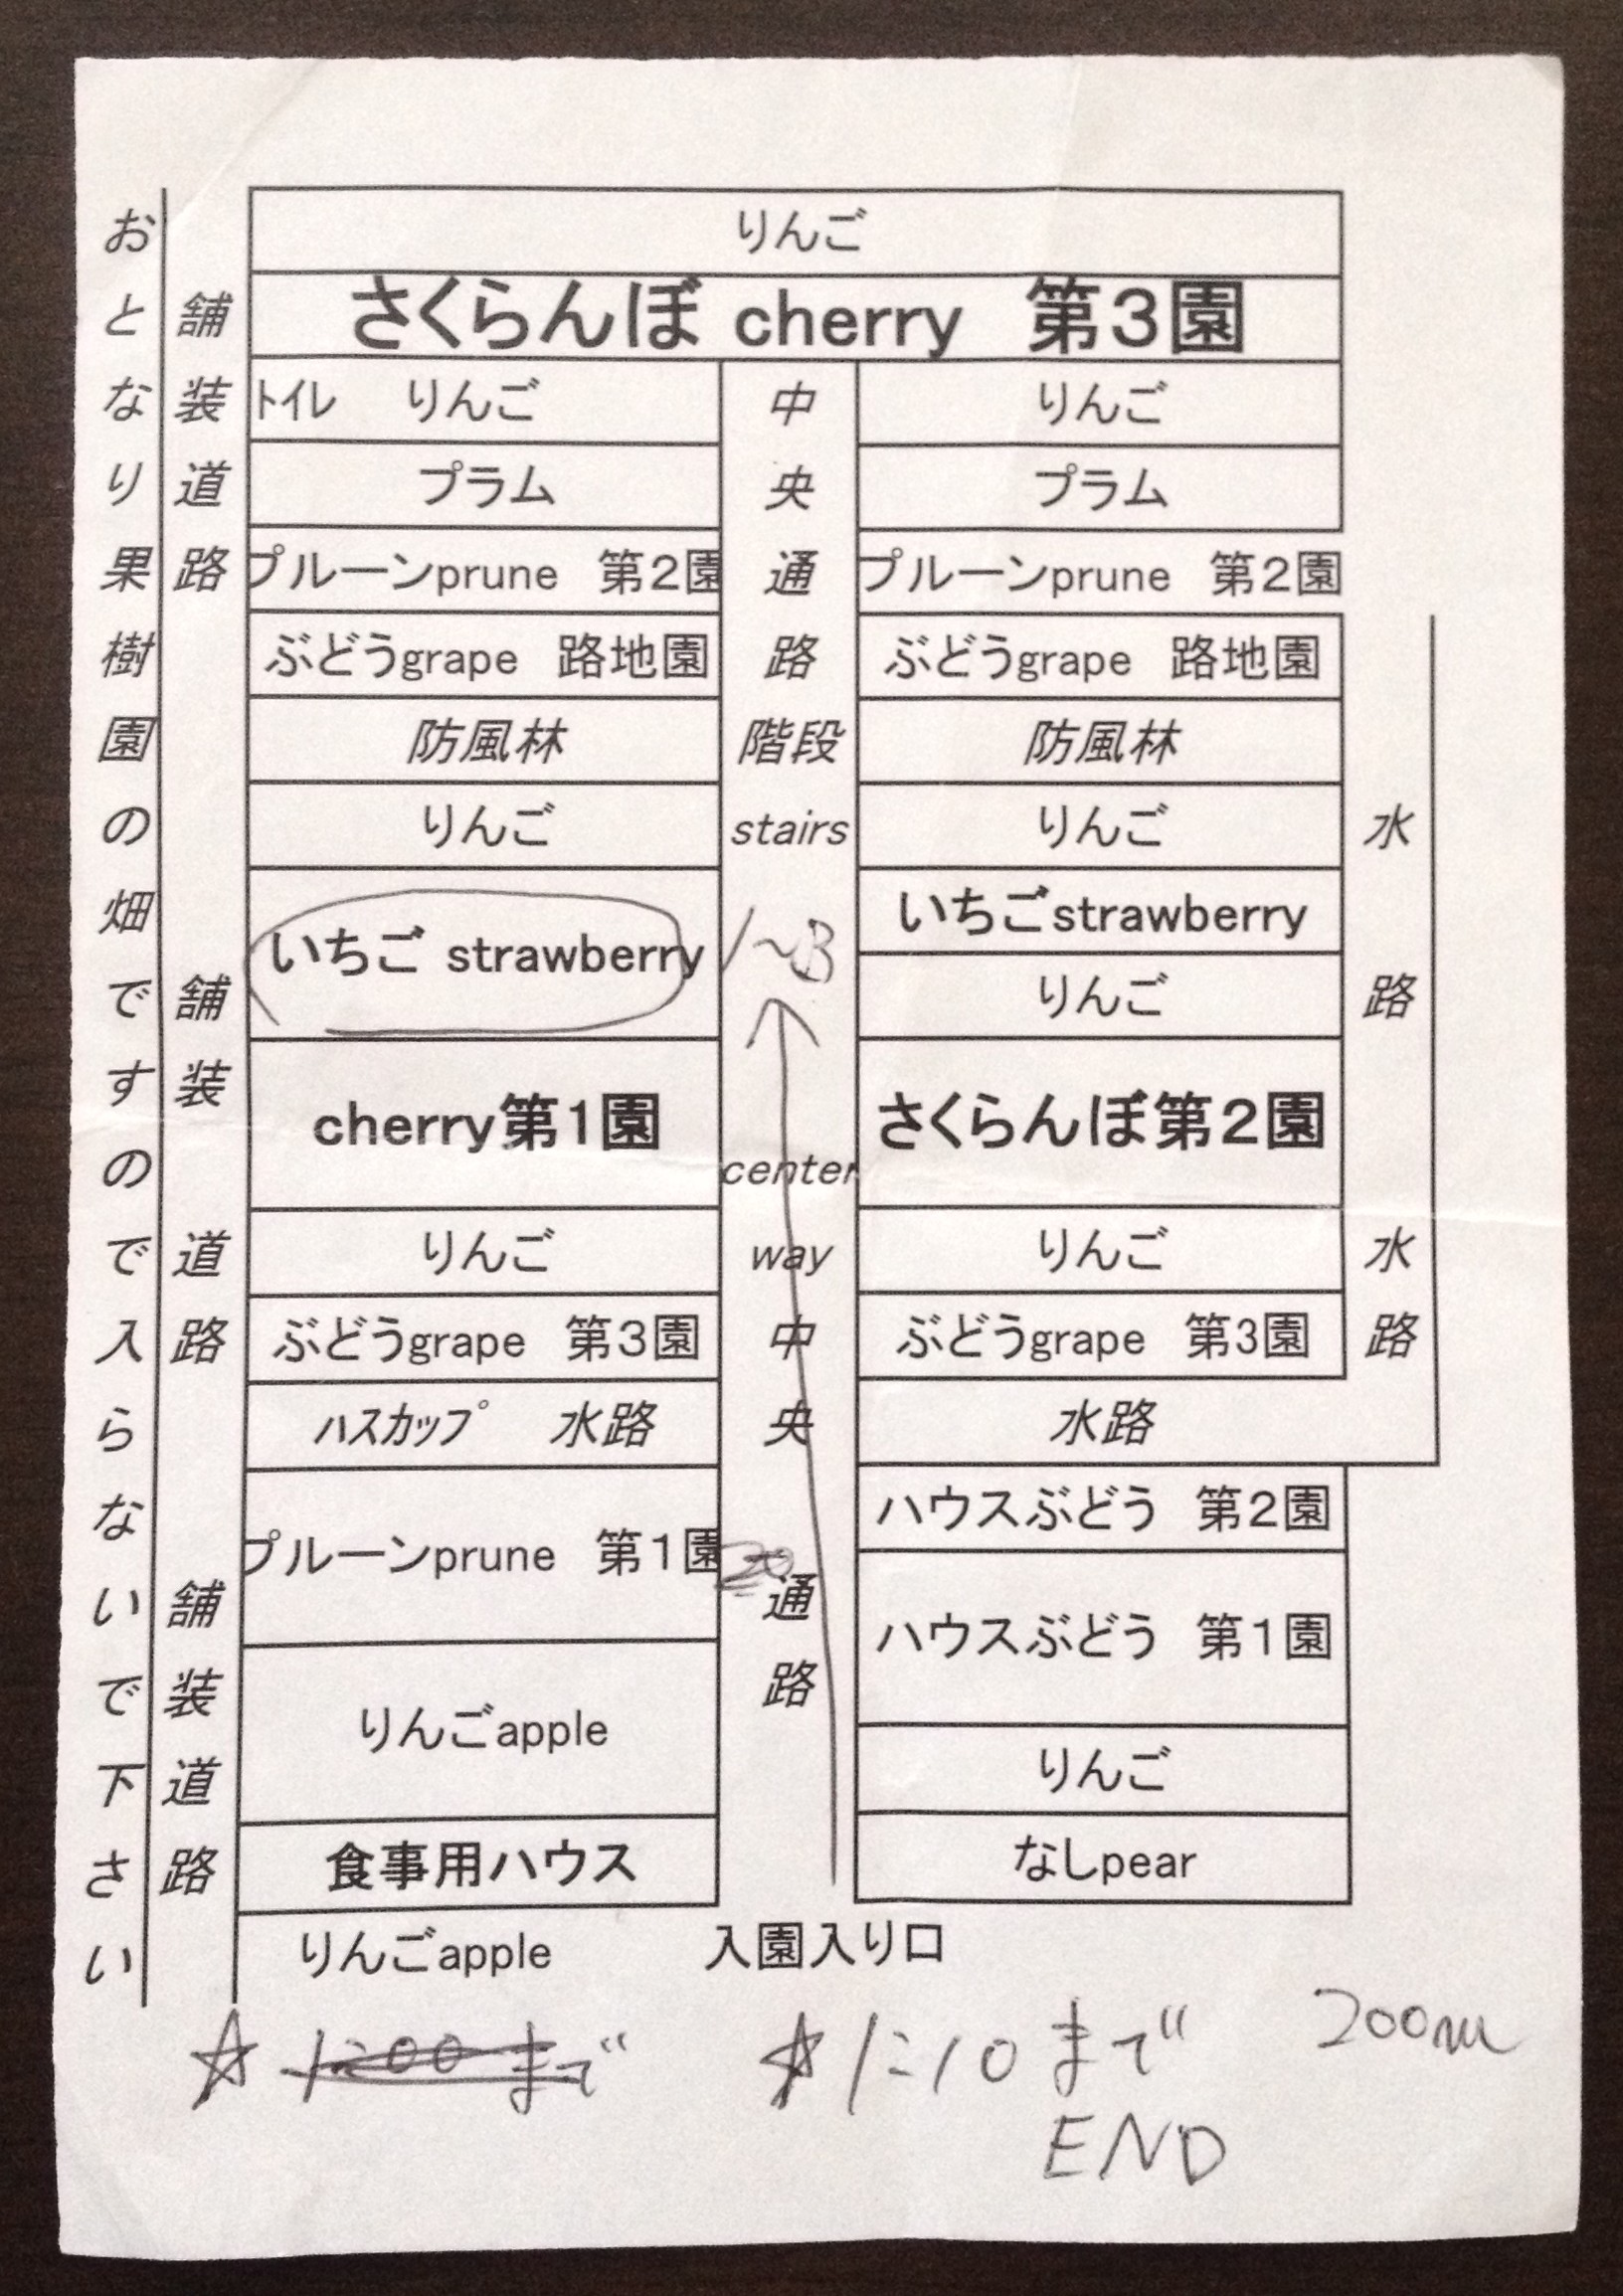 おとなり果樹園の畑ですので入らないで下さい
舗装道路
舗装道路
舗装道路
りんご
さくらんぼ cherry 第3園
トイレ りんご
りんご
プラム
プラム
プルーンprune 第2園
プルーンprune 第2園
ぶどうgrape 路地園
ぶどうgrape 路地園
防風林
防風林
りんご
りんご
いちご strawberry
いちごstrawberry
りんご
cherry第1園
さくらんぼ第2園
りんご
りんご
ぶどうgrape 第3園
ぶどうgrape 第3園
ハスカップ 水路
水路
プルーンprune 第1園
ハウスぶどう 第2園
ハウスぶどう 第1園
りんごapple
りんご
食事用ハウス
なしpear
中央通路
階段
stairs
1~3
center
way
中央通路
水路
水路
りんごapple
入園入り口
☆ 1:00 まで
☆ 1:10 まで
END
200m